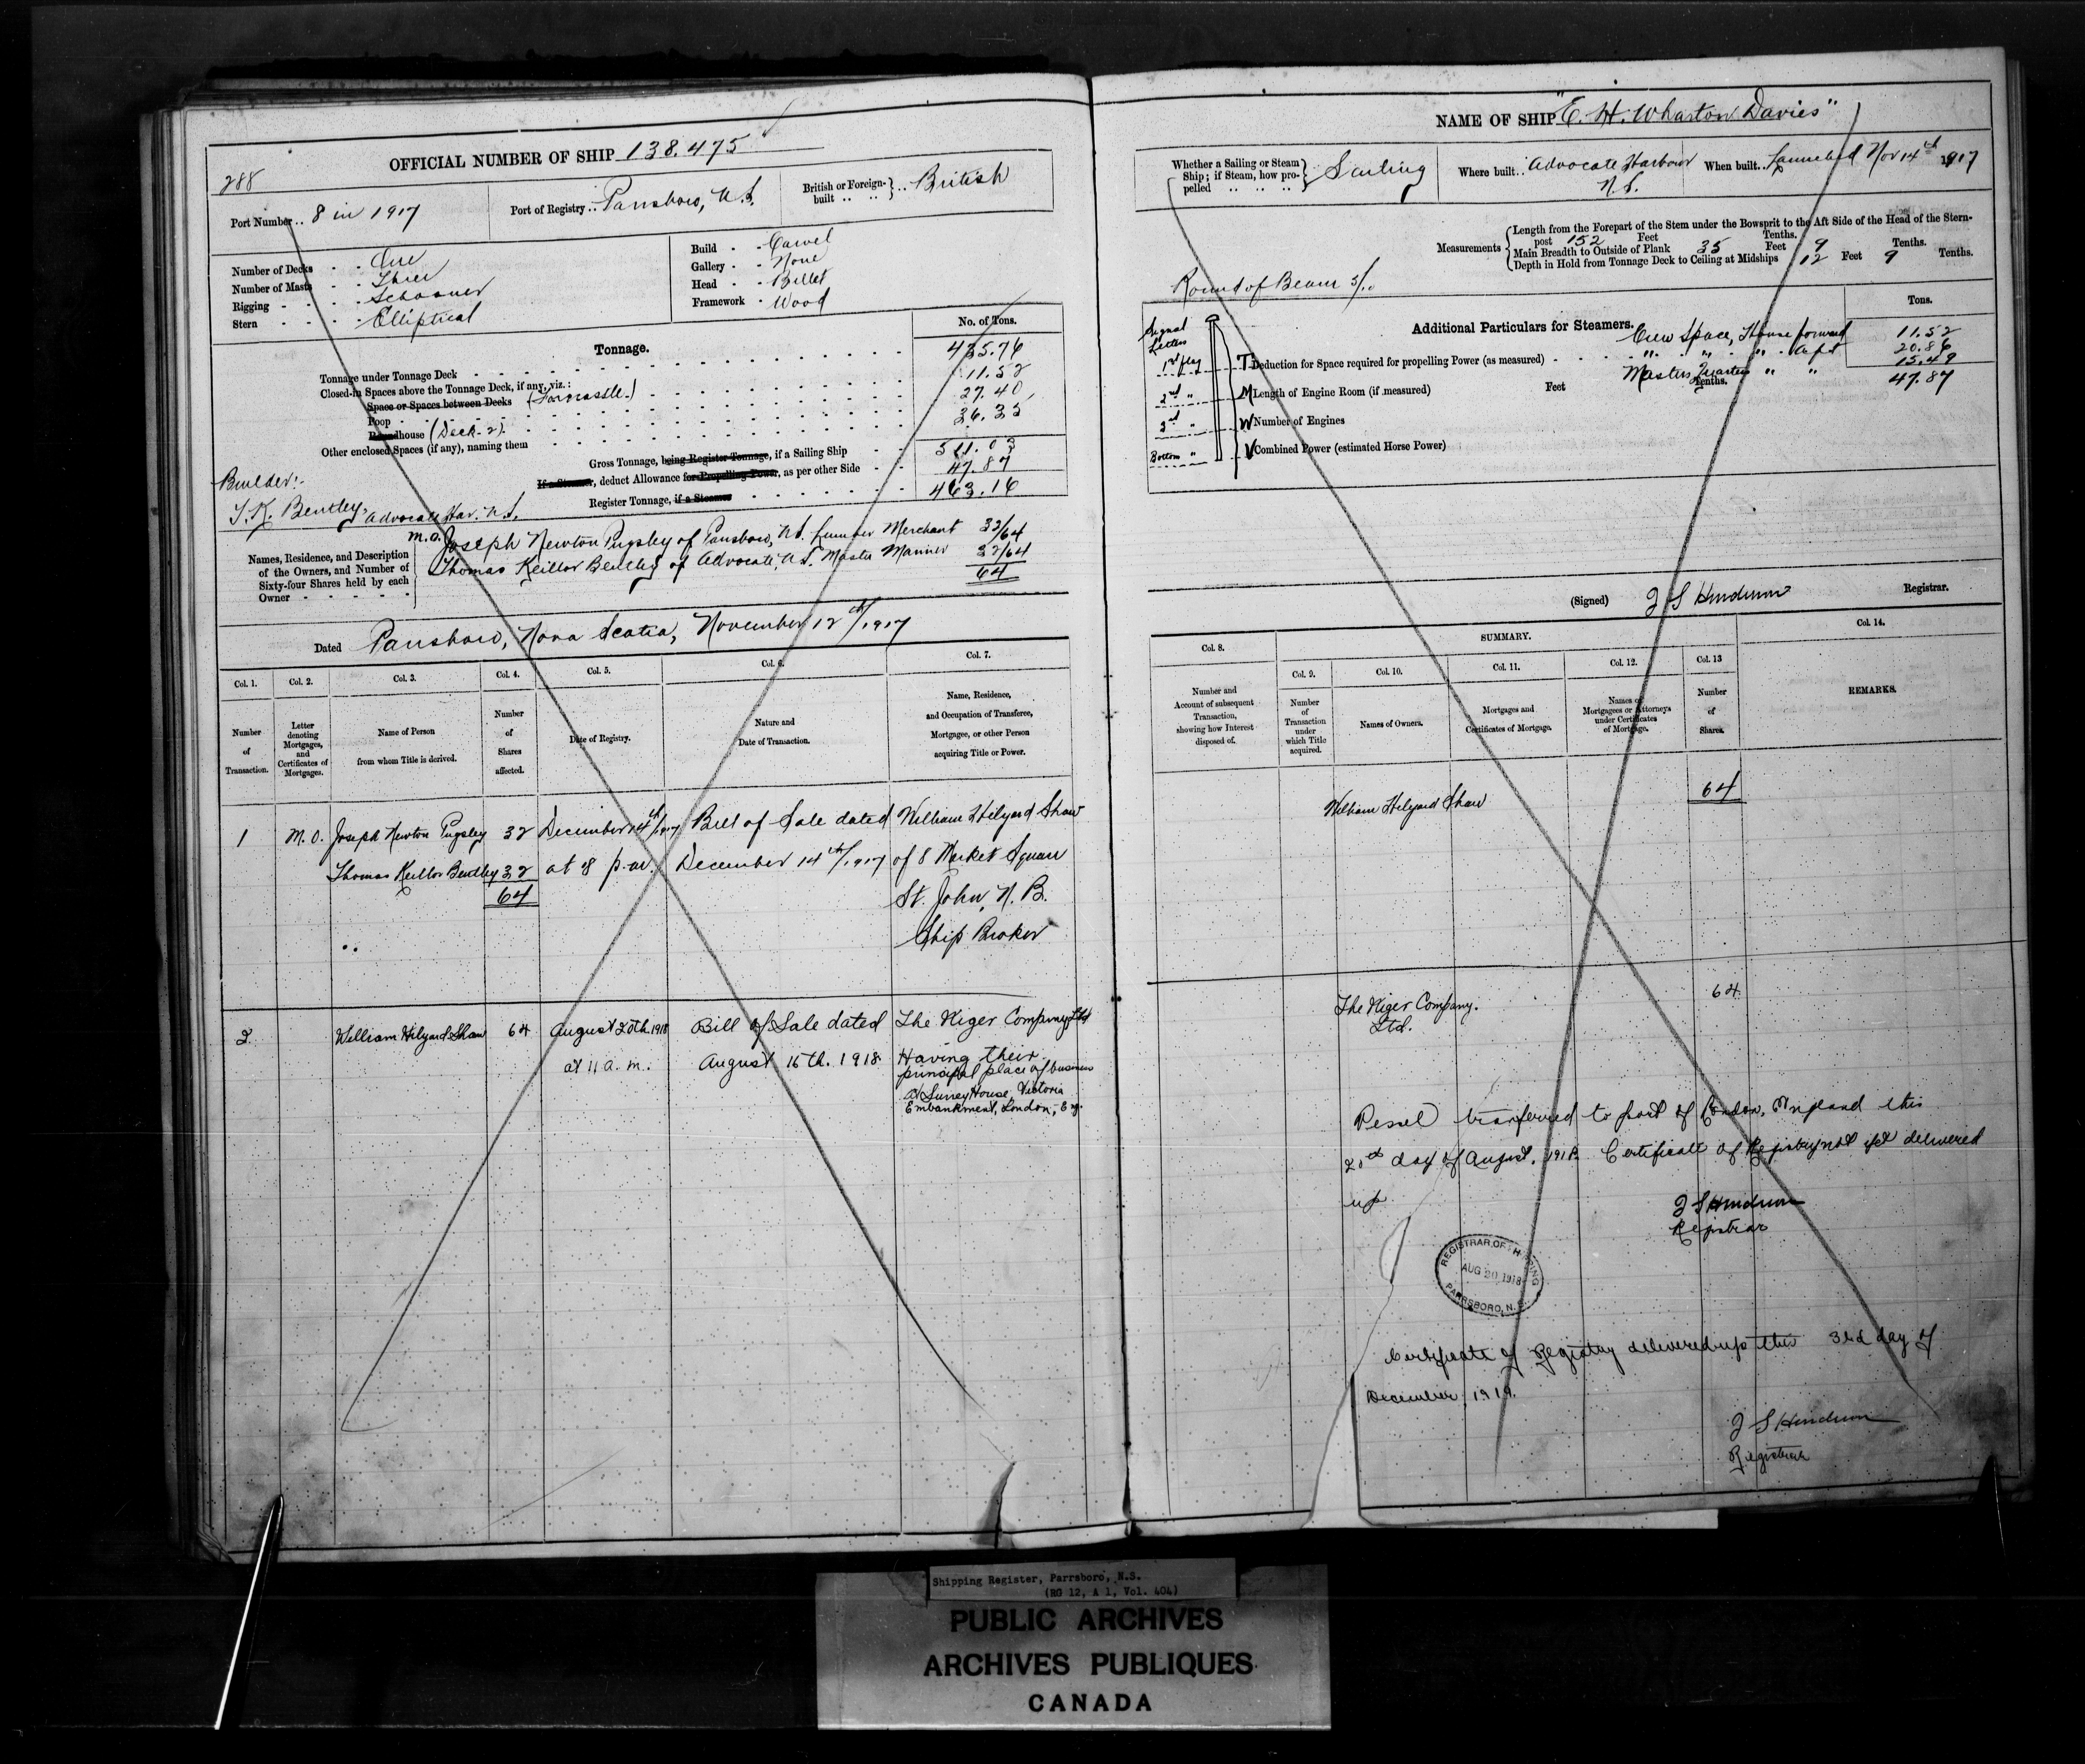 OFFICIAL NUMBER OF SHIP 138.475
288
Port Number .. 8 in 1917
Port of Registry .. Parrsboro, N.S.
British or Foreign-built .. British
Number of Decks - - One
Number of Masts - - Three
Rigging - - - - Schooner
Stern - - - - Elliptical
Build - - Carvel
Gallery - - None
Head - - Billet
Framework - Wood
Tonnage.
No. of Tons.
Tonnage under Tonnage Deck 435.76
Closed-in Spaces above the Tonnage Deck, if any, viz.:
Space or Spaces between Decks (Forecastle.) 11.52
Poop 27.40
Roundhouse (Deck-2) 36.35
Other enclosed Spaces (if any), naming them
Gross Tonnage, being Register Tonnage, if a Sailing Ship 511.03
If a Steamer, deduct Allowance for Propelling Power, as per other Side 47.87
Register Tonnage, if a Steamer 463.16
Builder:-
T.K. Bentley, Advocate Har. N.S.
Names, Residence, and Description
of the Owners, and Number of
Sixty-four Shares held by each
Owner - - - - -
M.O. Joseph Newton Pugsley of Parrsboro, N.S. Lumber Merchant 32/64
Thomas Keillor Bentley of Advocate, N.S. Master Mariner 32/64
64
Dated Parrsboro, Nova Scotia, November 12th/1917
Col. 1. Col. 2. Col. 3. Col. 4. Col. 5. Col. 6. Col. 7.
Number
of
Transaction.
Letter
denoting
Mortgages,
and
Certificates of
Mortgages.
Name of Person
from whom Title is derived.
Number
of
Shares
affected.
Date of Registry.
Nature and
Date of Transaction.
Name, Residence,
and Occupation of Transferee,
Mortgagee, or other Person
acquiring Title or Power.
1 M.O. Joseph Newton Pugsley 32 December 14th/1917 Bill of Sale dated William Hilyard Shaw
Thomas Keillor Bentley 32 at 8 p.m. December 14th/1917 of 8 Market Square
64 St. John, N.B.
Ship Broker
2 William Hilyard Shaw 64 August 20th. 1918 Bill of Sale dated The Niger Company Ltd
at 11 a.m. August 16th. 1918 Having their
principal place of business
at Surrey House, Victoria
Embankment, London, Eng.
NAME OF SHIP "E. H. Wharton Davies"
Whether a Sailing or Steam
Ship; if Steam, how pro-
pelled .. .. .. Sailing
Where built .. Advocate Harbour
N.S.
When built .. Launched Nov 14th 1917
Measurements
Length from the Forepart of the Stem under the Bowsprit to the Aft Side of the Head of the Stern-
post 152 Feet Tenths.
Main Breadth to Outside of Plank 35 Feet 9 Tenths.
Depth in Hold from Tonnage Deck to Ceiling at Midships 12 Feet 9 Tenths.
Round of Beam 5/10
Signal
Letters
1st flag T
2nd " M
3rd " W
Bottom " V
Additional Particulars for Steamers.
Tons.
Crew Space, House forward 11.52
" " " Aft 20.86
Masters Quarters " " 15.49
47.87
Deduction for Space required for propelling Power (as measured)
Length of Engine Room (if measured) Feet Tenths.
Number of Engines
Combined Power (estimated Horse Power)
(Signed) J S Henderson Registrar.
Col. 8.
SUMMARY.
Col. 14.
Col. 9. Col. 10. Col. 11. Col. 12. Col. 13
Number and
Account of subsequent
Transaction,
showing how Interest
disposed of.
Number
of
Transaction
under
which Title
acquired.
Names of Owners.
Mortgages and
Certificates of Mortgage.
Names of
Mortgagees or Attorneys
under Certificates
of Mortgage.
Number
of
Shares.
REMARKS.
William Hilyard Shaw 64
The Niger Company. 64
Ltd.
Vessel transferred to port of London, England this
20th day of August, 1918. Certificate of Registry not yet delivered
up
J S Henderson
Registrar
REGISTRAR OF SHIPPING
AUG 20 1918
PARRSBORO, N.S.
Certificate of Registry delivered up this 3rd day of
December, 1919.
J S Henderson
Registrar
Shipping Register, Parrsboro, N.S.
(RG 12, A 1, Vol. 404)
PUBLIC ARCHIVES
ARCHIVES PUBLIQUES
CANADA